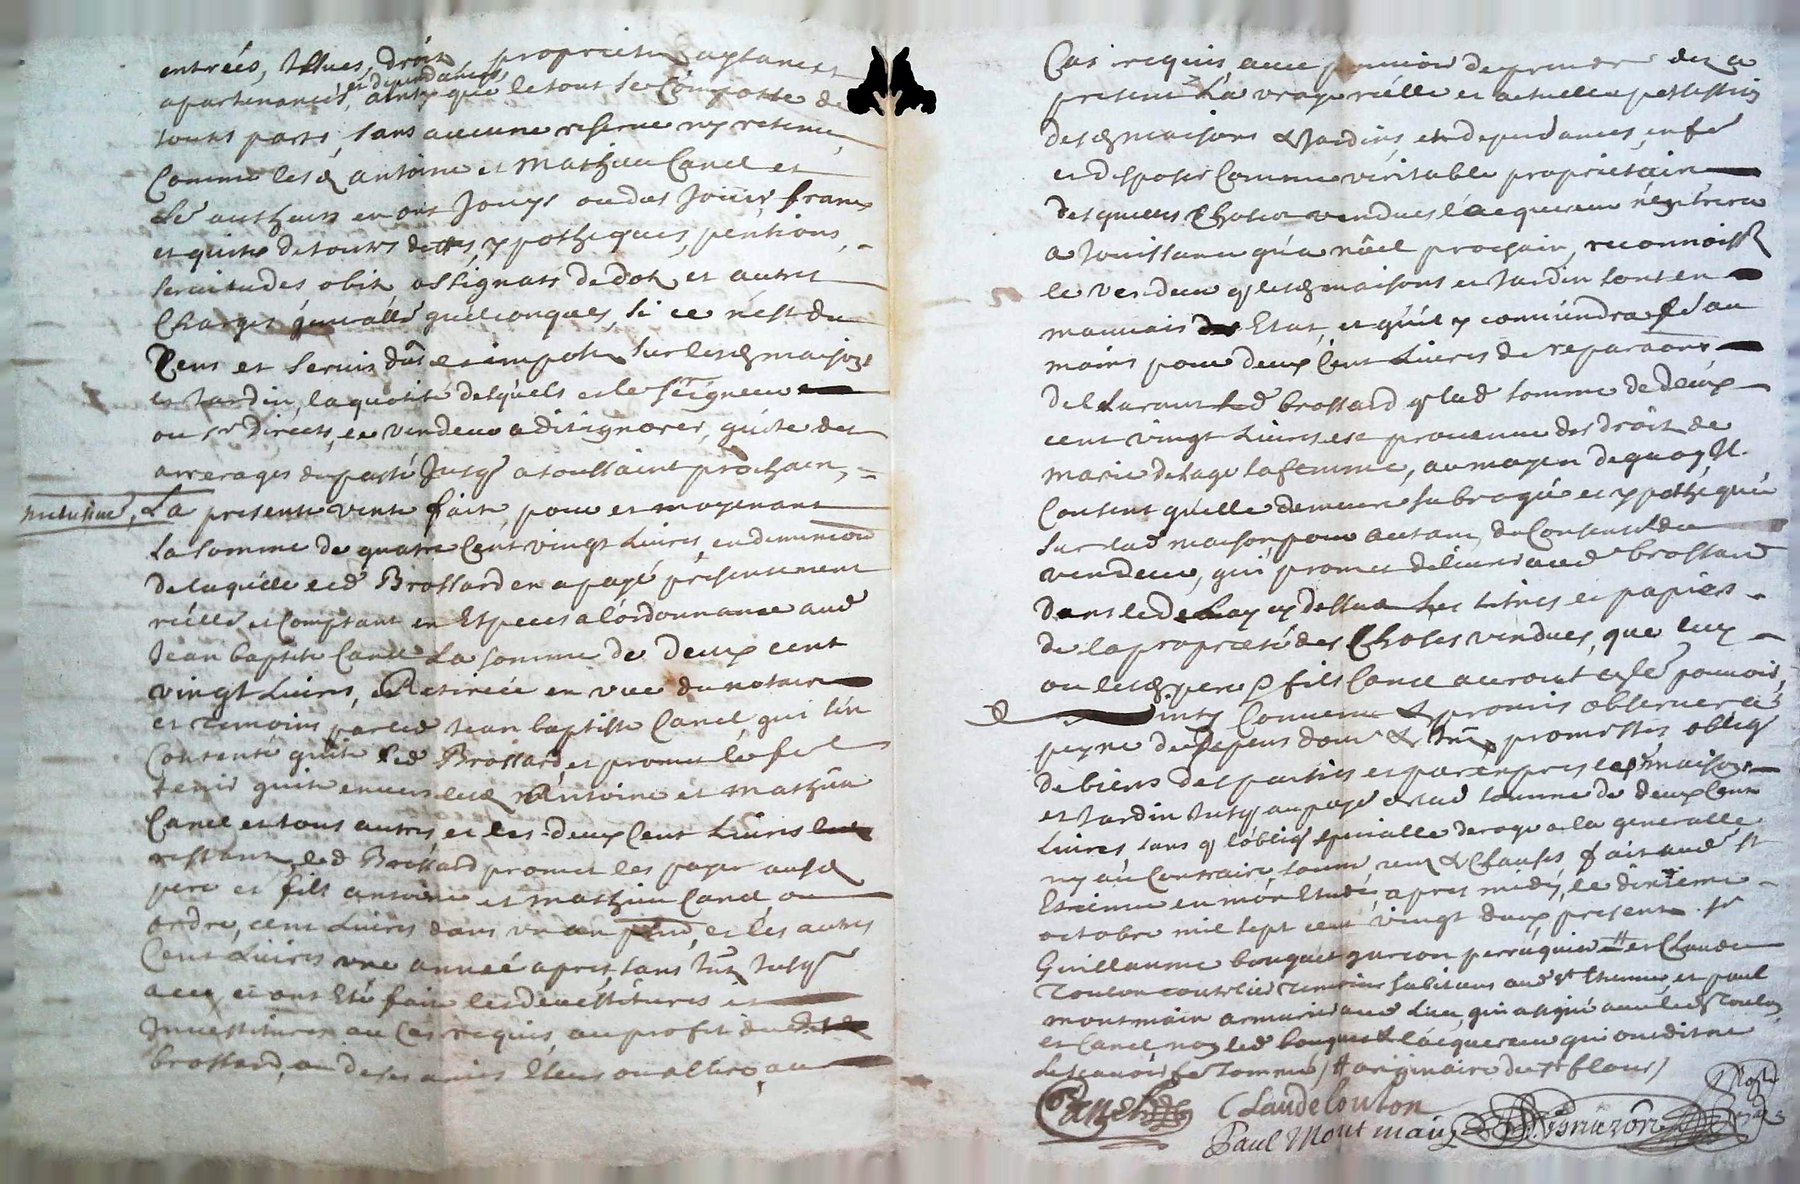 entrées, Issues, droit propriétés
apartenances, et dependances, ainsy que le tout se Comporte de
toutes parts, sans aucune reserve ny retenue
Comme lesd antoine et Mathieu Canel et
autheurs en ont Jouys ou deu Jouir francs
et quitte de toutes dettes, ypotheques, pentions,
servitudes obit assignats de dot, et autres
Charges generalles quelconques, si ce n'est du
Cens et servis dûs et imposés sur lesd maisons
et Jardin, la quotité desquels et le seigneur
ou sr Directs, le vendeur a dit ignorer, quitte des
arrerages du passé Jusq a toussaint prochain,
inclusive, La presente vente faite, pour et moyenant
La somme de quatre Cent vingt Livres, en deduction
de laquelle led Brossard en a payé presentement
réelle et Comptant en Especes a l'ordonnance aud
Jean baptiste Canel La somme de deux cent
vingt Livres, Retirée en vue du notaire
et temoins par led Jean baptiste Canel qui s'en
Contente quitte led Brossard et promet le fe
tenir quitte envers lesd Antoine et Mathieu
Canel et tous autres, et les deux Cent Livres
restant led Brossard promet les payer ausd
pere et fils antoine et Mathieu Canel ou
ordre, cent Livres dans un an prochn, et les autres
Cent Livres une année apres, sans Jusq
a ce et ont Eté fait les devestitures et
Investitures au Cas requis, au profit dud
brossard, ou de ses amis Eleus ou a Elire, au
Cas requis avec pouvoir de prendre dez a
present La vraye réelle et actuelle possession
desd maisons & Jardins, et dependances, en fe
et disposer Comme véritable propriétaire
desquelles Choses vendues l'acquereur n'entrera
a Jouissance qu'a nöel prochain, reconnoiss
le vendeur q lesd maisons et Jardin sont en
mauvais Etat, et qu'il y conviendra fe au
moins pour deux Cent Livres de reparaons
declarant led brossard q lad somme de deux
cent vingt Livres est provenue des droits de
marie delage sa femme, au moyen de quoy Il
Consent qu'elle demeure subrogée et ypothequée
sur lad maison pour autant, du Consent du
vendeur, qui promet delivrer aud brossard
dans led delay cy dessus Les titres et papiers
de la proprieté des Choses vendues, que luy
ou lesd pere & fils Canel auront en le pouvoir,
Ainsy Convenu & promis observer a
peyne de depens dom & Int promesses oblig
de biens des parties et par exprès lesd maisons
et Jardin Jusq au paye de lad somme de deux Cent
Livres, sans q l'oblig specialle deroge a la generalle
ny au Contraire, soum ren & Clauses fait aud st
Etienne en mon Etude, apres midy, le dixieme
octobre mil sept cent vingt deux, present sr
Guillaume bouquet garcon perruquier # et Claude
Touton coutelier Temoins habitans aud st Etienne, et paul
montmain armurier aud Lieu, qui a signé avec led Touton
et Canel non led bouquet & l'acquereur qui ont dit ne
le scavoir fe sommés / # originaire de st flour /
Canel
Claude touton
Paul Montmain